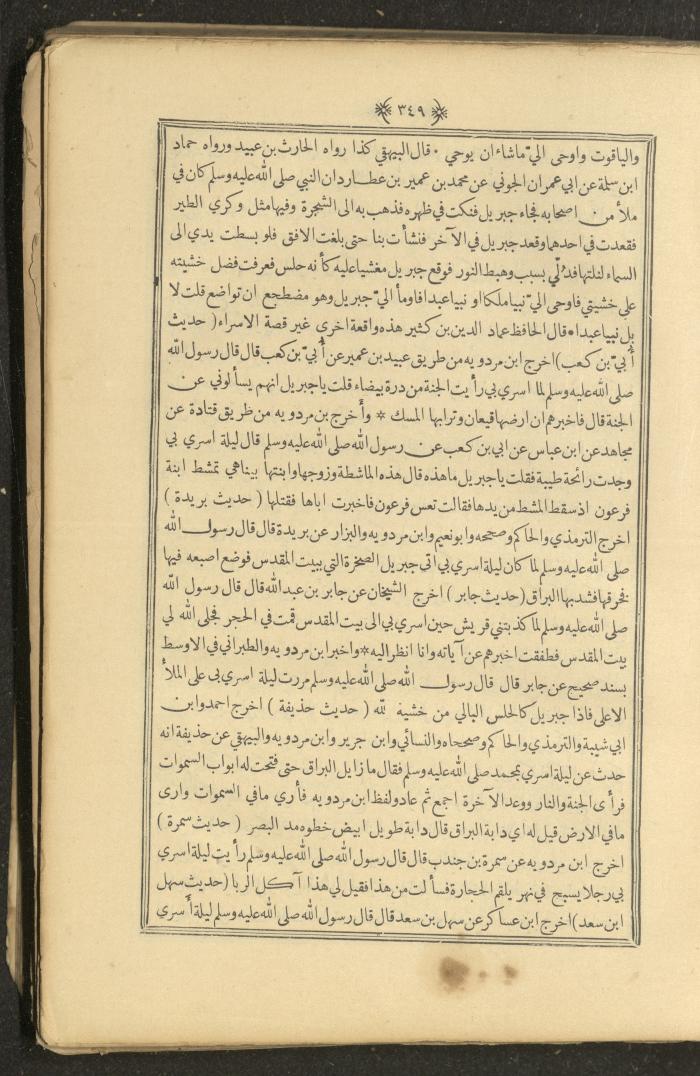 ٣٤٩
والياقوت واوحى اليّ ماشاء ان يوحي • قال البيهقي كذا رواه الحارث بن عبيد ورواه حماد
ابن سلمة عن ابي عمران الجوني عن محمد بن عمير بن عطارد ان النبي صلى الله عليه وسلم كان في
ملأ من اصحابه فجاء جبريل فنكت في ظهره فذهب به الى الشجرة وفيها مثل وكري الطير
فقعدت في احدهما وقعد جبريل في الآخر فنشأت بنا حتى بلغت الافق فلو بسطت يدي الى
السماء لنلتها فدُلّي بسبب وهبط النور فوقع جبريل مغشيا عليه كأنه حلس فعرفت فضل خشيته
على خشيتي فاوحي اليّ نبيا ملكا او نبيا عبدا فاومأ اليّ جبريل وهو مضطجع ان تواضع قلت لا
بل نبيا عبدا • قال الحافظ عماد الدين بن كثير هذه واقعة اخرى غير قصة الاسراء ( حديث
أُبيّ بن كعب ) اخرج ابن مردويه من طريق عبيد بن عمير عن أُبيّ بن كعب قال قال رسول الله
صلى الله عليه وسلم لما اسري بي رأيت الجنة من درة بيضاء قلت ياجبريل انهم يسألوني عن
الجنة قال فاخبرهم ان ارضها قيعان وترابها المسك * وأخرج بن مردويه من طريق قتادة عن
مجاهد عن ابن عباس عن ابي بن كعب عن رسول الله صلى الله عليه وسلم قال ليلة اسري بي
وجدت رائحة طيبة فقلت ياجبريل ماهذه قال هذه الماشطة وزوجها وابنتها بيناهي تمشط ابنة
فرعون اذ سقط المشط من يدها فقالت تعس فرعون فاخبرت اباها فقتلها ( حديث بريدة )
اخرج الترمذي والحاكم وصححه وابو نعيم وابن مردويه والبزار عن بريدة قال قال رسول الله
صلى الله عليه وسلم لما كان ليلة اسري بي اتى جبريل الصخرة التي ببيت المقدس فوضع اصبعه فيها
فخرقها فشد بها البراق ( حديث جابر ) اخرج الشيخان عن جابر بن عبد الله قال قال رسول الله
صلى الله عليه وسلم لما كذبتني قريش حين اسري بي الى بيت المقدس قمت في الحجر فجلى الله لي
بيت المقدس فطفقت اخبرهم عن آياته وانا انظر اليه * واخبرا بن مردويه والطبراني في الاوسط
بسند صحيح عن جابر قال قال رسول الله صلى الله عليه وسلم مررت ليلة اسري بي على الملأ
الاعلى فاذا جبريل كالحلس البالي من خشية لله ( حديث حذيفة ) اخرج احمد وابن
ابي شيبة والترمذي والحاكم وصححاه والنسائي وابن جرير وابن مردويه والبيهقي عن حذيفة انه
حدث عن ليلة اسري بمحمد صلى الله عليه وسلم فقال مازايل البراق حتى فتحت له ابواب السموات
فرأى الجنة والنار ووعد الآخرة اجمع ثم عاد ولفظ ابن مردويه فأري مافي السموات وارى
مافي الارض قيل له اي دابة البراق قال دابة طويل ابيض خطوه مد البصر ( حديث سمرة )
اخرج ابن مردويه عن سمرة بن جندب قال قال رسول الله صلى الله عليه وسلم رأيت ليلة اسري
بي رجلا يسبح في نهر يلقم الحجارة فسألت من هذا فقيل لي هذا آكل الربا ( حديث سهل
ابن سعد ) اخرج ابن عساكر عن سهل بن سعد قال قال رسول الله صلى الله عليه وسلم ليلة أسري